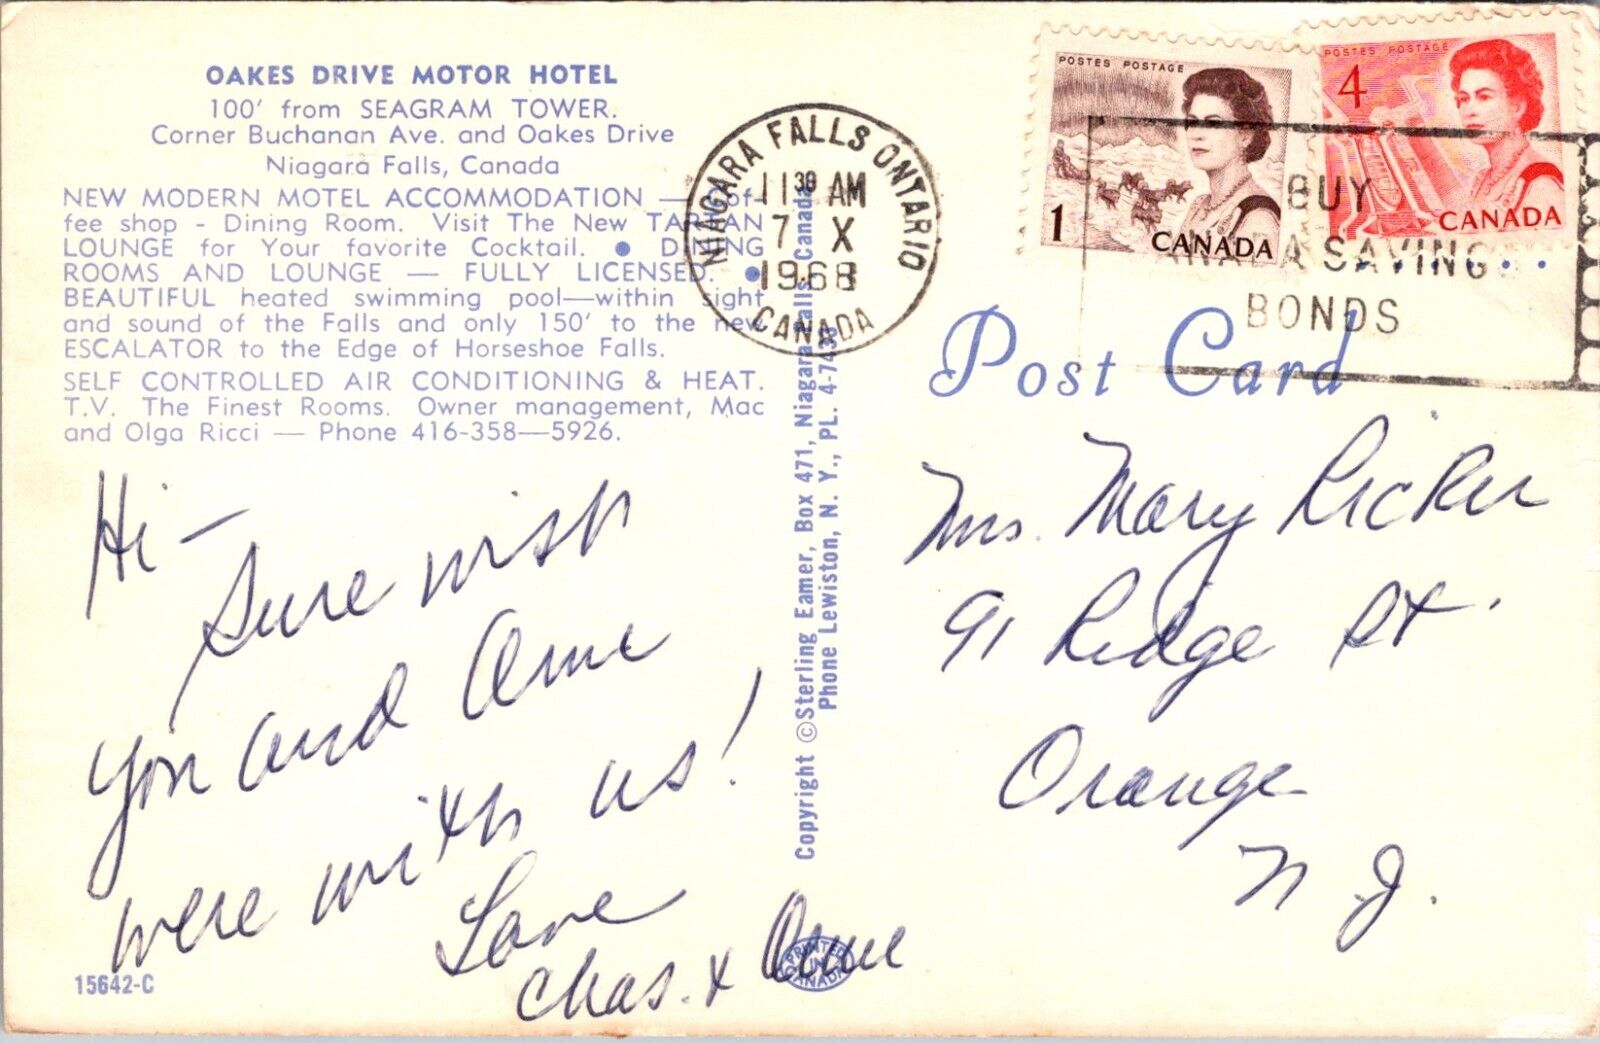 OAKES DRIVE MOTOR HOTEL
100' from SEAGRAM TOWER.
Corner Buchanan Ave. and Oakes Drive
Niagara Falls, Canada
NEW MODERN MOTEL ACCOMMODATION — Cof-
fee shop - Dining Room. Visit The New TARTAN
LOUNGE for Your favorite Cocktail. • DINING
ROOMS AND LOUNGE — FULLY LICENSED. •
BEAUTIFUL heated swimming pool—within sight
and sound of the Falls and only 150' to the new
ESCALATOR to the Edge of Horseshoe Falls.
SELF CONTROLLED AIR CONDITIONING & HEAT.
T.V. The Finest Rooms. Owner management, Mac
and Olga Ricci — Phone 416-358—5926.
Hi –
Sure wish
you and Ame
were with us!
Love
Chas. & Anne
15642-C
PRINTED
IN
CANADA
Copyright © Sterling Eamer, Box 471, Niagara Falls, Canada
Phone Lewiston, N. Y., PL. 4-7436
NIAGARA FALLS ONTARIO
11 30 AM
7 X
1968
CANADA
POSTES POSTAGE
1
CANADA
POSTES POSTAGE
4
CANADA
BUY
CANADA SAVINGS
BONDS
Post Card
Mrs. Mary Ricker
91 Ridge St.
Orange
N.J.